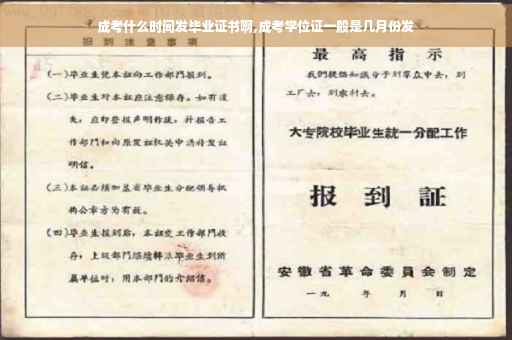 成考什么时间发毕业证书啊,成考学位证一般是几月份发
报到注意事项
(一)毕业生凭本证向工作部门报到。
(二)毕业生对本证应注意保存。如有遗
失,应即登报声明作废,并报告工
作部门和向原发证机关申请补发证
明信。
(三)本证必须加盖省毕业生分配领导机
构公章方为有效。
(四)毕业生报到后,本证交工作部门收
存;上级部门
属单位时,用本部门的介绍信。
最高指示
我们提倡知识分子到群众中去,到
工厂去,到农村去。
大专院校毕业生统一分配工作
报到证
安徽省革命委员会制定
一九 年 月 日